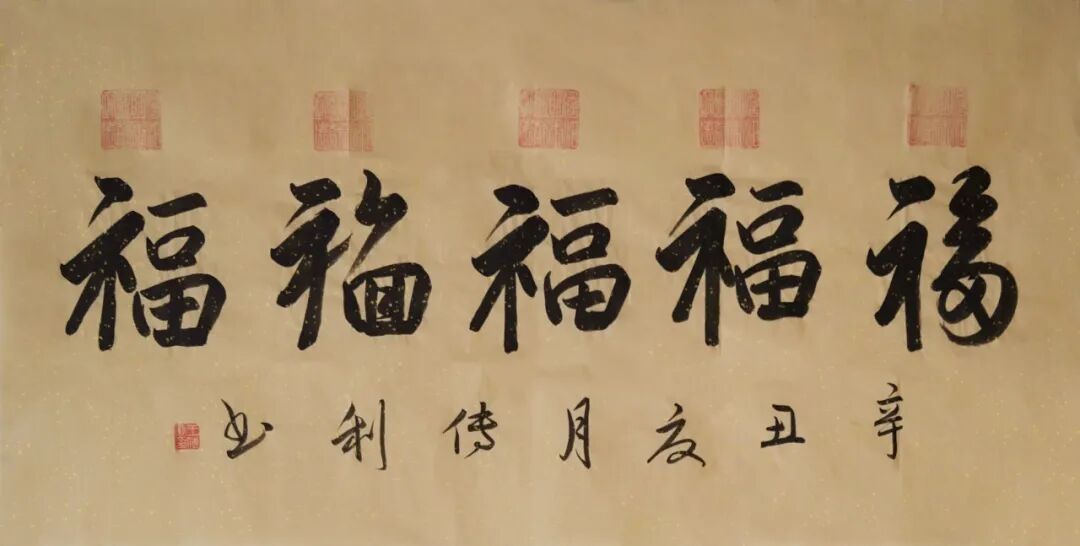 福福福福福
辛丑夏月傳利书